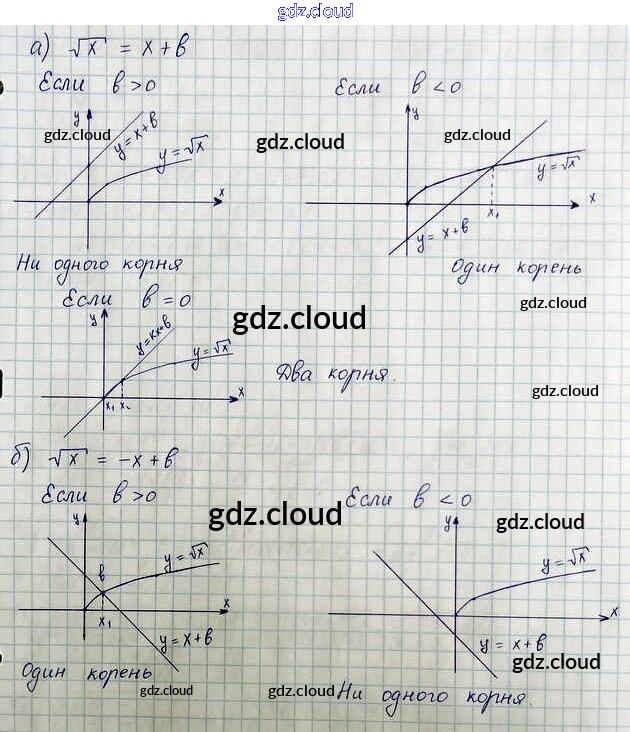 gdz.cloud
а) √x = x + b
Если b > 0
Если b < 0
y
y = x + b
y = √x
x
gdz.cloud
gdz.cloud
gdz.cloud
y
y = √x
x₁
x
y = x + b
gdz.cloud
Ни одного корня
Один корень
gdz.cloud
Если b = 0
gdz.cloud
y
y = kx + b
y = √x
x₁ x₂
x
Два корня.
gdz.cloud
б) √x = -x + b
Если b > 0
Если b < 0
gdz.cloud
gdz.cloud
y
b
y = √x
x₁
x
y = x + b
y
y = √x
x
y = x + b
gdz.cloud
Один корень
gdz.cloud
gdz.cloud
Ни одного корня.